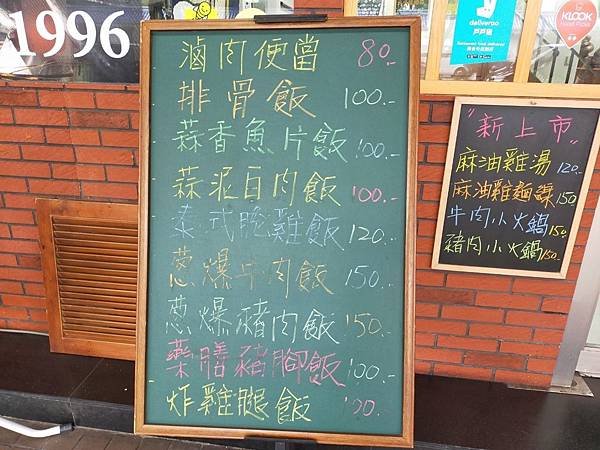 1996
滷肉便當 80.-
排骨飯 100.-
蒜香魚片飯 100.-
蒜泥白肉飯 100.-
泰式脆雞飯 120.-
蔥爆牛肉飯 150.-
蔥爆豬肉飯 150.-
藥膳豬腳飯 100.-
炸雞腿飯 100.
deliveroo
戶戶送
KLOOK
"新上市"
麻油雞湯 120.-
麻油雞麵線 150
牛肉小火鍋 150.
豬肉小火鍋 150.-